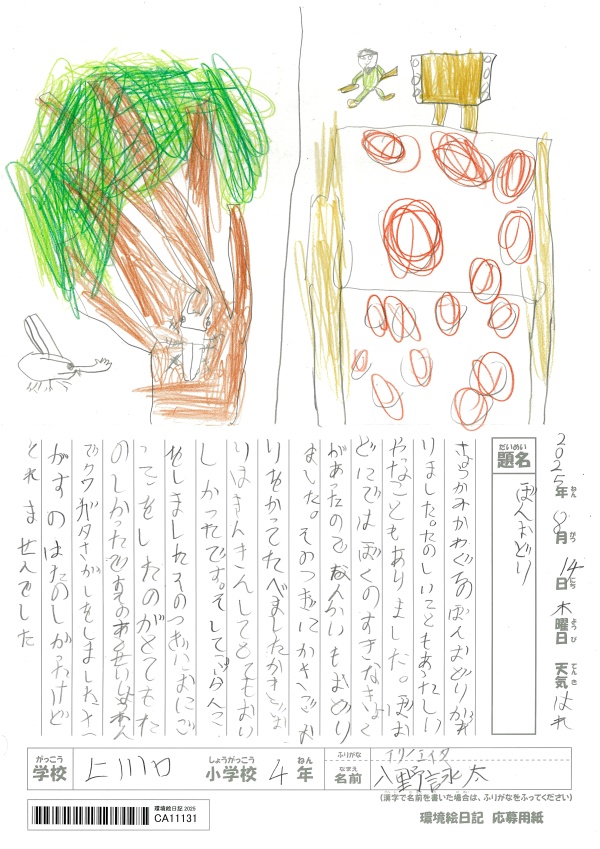 2025年ねん 8月がつ 14日にち 木曜日ようび 天気てんき はれ
だいめい
題名 ぼんおどり
かみかわぐちのぼんおどりがあ
りました。たのしいこともあったしい
やなこともありました。ぼんお
どりではぼくのすきなきょく
があったので なんかいもおどり
ました。そのつぎにかきごお
りをかってたべましたかきごお
りはきんきんしてとてもおい
しかったです。そしてだんご
をしましたそのつぎにおにご
っこをしたのがとてもた
のしかったです
でクワガタさがしをしましたさ
がすのはたのしかったけど
とれませんでした
がっこう しょうがっこう ねん
学校 上川口 小学校 4年
ふりがな イリノエイタ
なまえ
名前 入野詠太
(漢字で名前を書いた場合は、ふりがなをふってください)
環境絵日記 2025
CA11131
環境絵日記 応募用紙